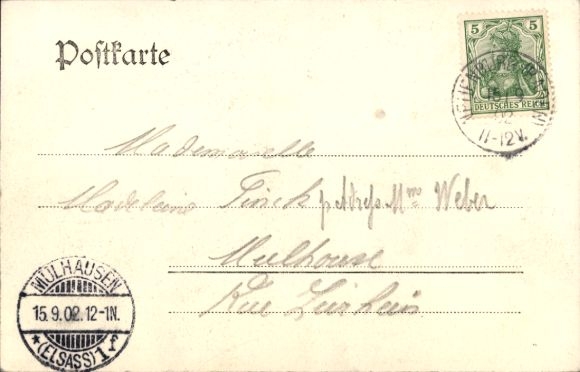 Postkarte
5 5
DEUTSCHES REICH
15/9
02
11-12V.
Mademoiselle
Madeleine Finck p Adress Mme Weber
Mulhouse
Rue
MÜLHAUSEN
15.9.02.12-1N.
*(ELSASS)1f